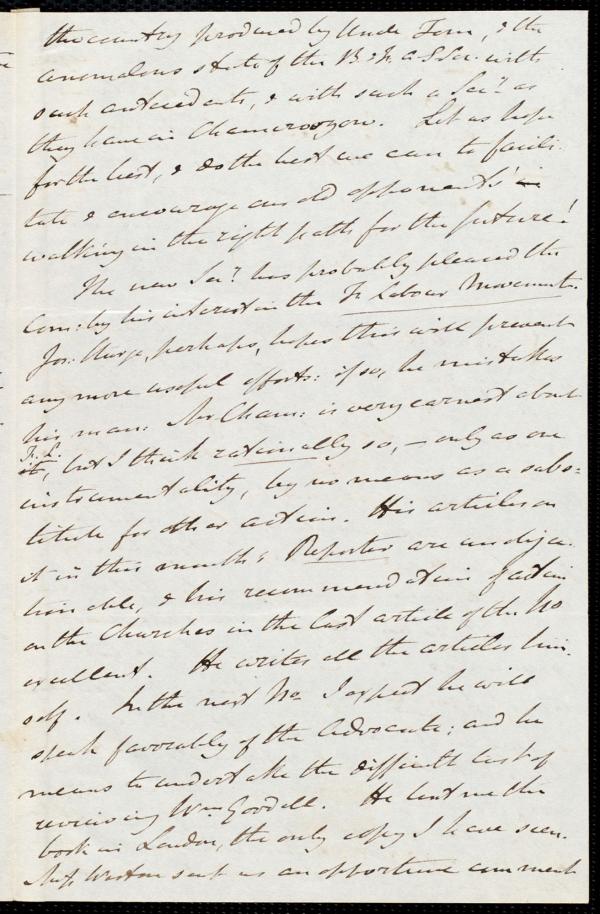 the country produced by Uncle Tom, & the
anomalous state of the B. & F. A. S. Soc. with
such antecedents, & with such a Secy. as
they have in Chamerovzow. Let us hope
for the best, & do the best we can to facili-
tate & encourage our old opponents'
walking in the right path for the future!
The new Secy. has probably pleased the
Com: by his interest in the Fr Labour Movement.
Jos: Sturge, perhaps, hopes this will prevent
any more useful efforts: if so, he mistakes
his man: Mr Cham: is very earnest about
F. L.
it, but I think rationally so, — only as one
instrumentality, by no means as a subs-
titute for other action. His articles on
it in this month's Reporter are unobjec-
tionable, & his recommendations of action
on the Churches in the last article of the No
excellent. He writes all the articles him-
self. In the next No. I expect he will
speak favorably of the Advocate; and he
means to undertake the difficult task of
reviewing Wm Goodell. He lent me the
book in London, the only copy I have seen.
Miss Weston sent us an opportune comment